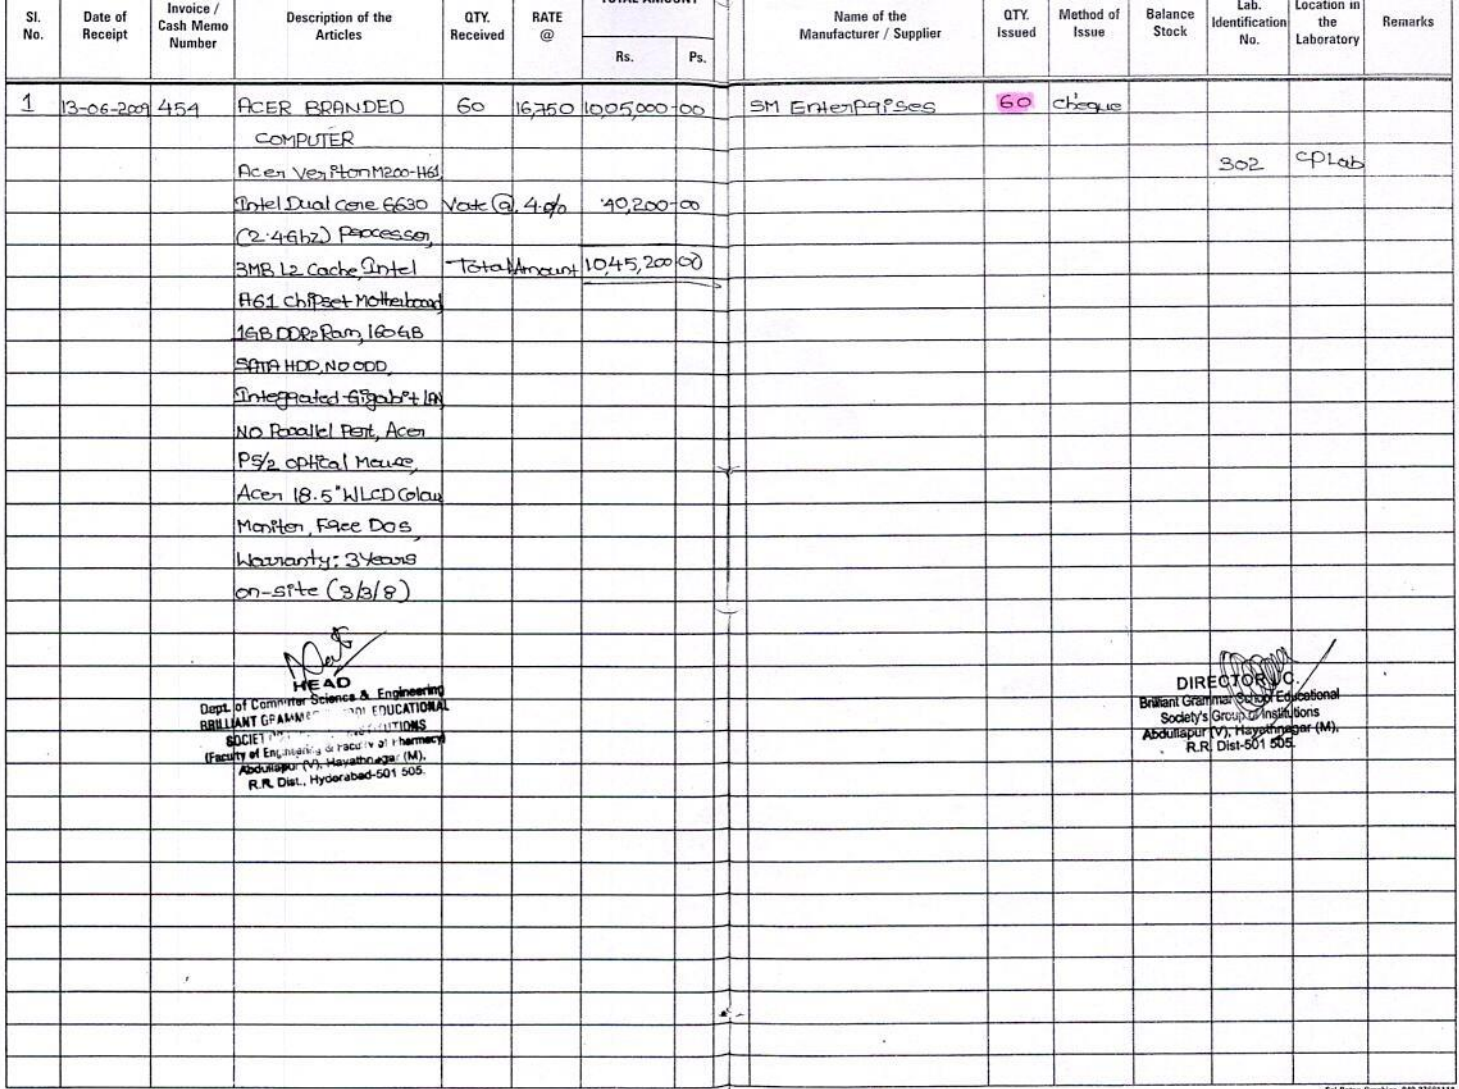 Sl. No. Date of Receipt Invoice / Cash Memo Number Description of the Articles QTY. Received RATE @ TOTAL AMOUNT Rs. Ps. Name of the Manufacturer / Supplier QTY. Issued Method of Issue Balance Stock Lab. Identification No. Location in the Laboratory Remarks
1 13-06-2009 454 ACER BRANDED 60 16,750 1005,000-00 SM Enterprises 60 cheque
COMPUTER
Acer Veriton M200-H61, 302 CP Lab
Intel Dual core E6630 Vate @. 4.0% 40,200-00
(2.4Ghz) Processor,
3MB L2 Cache, Intel Total Amount 10,45,200-00
H61 chipset Motherboard
1GB DDR2 Ram, 160GB
SATA HDD, NO ODD,
Integrated Gigabit LAN
NO Parallel Port, Acer
PS/2 optical Mouse,
Acer 18.5" WLCD Colour
Monitor, Free Dos,
Warranty: 3 Years
on-site (3/3/8)
HEAD
Dept. of Computer Science & Engineering
BRILLIANT GRAMMAR SCHOOL EDUCATIONAL
SOCIETY'S GROUP OF INSTITUTIONS
(Faculty of Engineering & Faculty of Pharmacy)
Abdullapur (V), Hayathnagar (M),
R.R. Dist., Hyderabad-501 505.
DIRECTOR I/C.
Brilliant Grammar School Educational
Society's Group of Institutions
Abdullapur (V), Hayathnagar (M),
R.R. Dist-501 505.